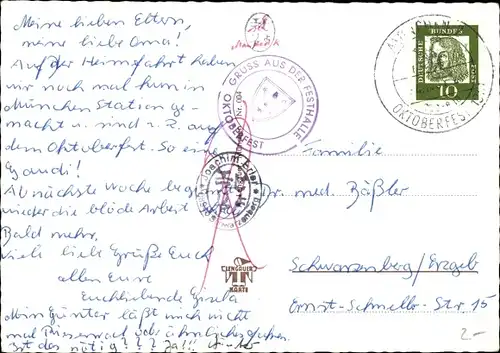 Meine lieben Eltern,
meine liebe Oma!
Auf der Heimfahrt haben
wir noch mal kurz in
München Station ge-
macht u. sind z. Z. auf
dem Oktoberfest. So eine
Gaudi!
Ab nächste Woche beginnt
wieder die blöde Arbeit
Bald mehr,
viele liebe Grüße Euch
allen Eure
Euchliebende Gisela
Mein Günter läßt mich nicht
mal Riesenrad oder ähnliches fahren.
Ist das nötig??? Ja!!!
GRUSS AUS DER FESTHALLE
OKTOBERFEST
Joachim
MÜNCHEN
OKTOBERFEST
DEUTSCHE BUNDESPOST
10
Familie
Dr. med. Bäßler
Schwarzenberg/Erzgeb
Ernst-Schneller-Str. 15
LENGAUER
KARTE
2-